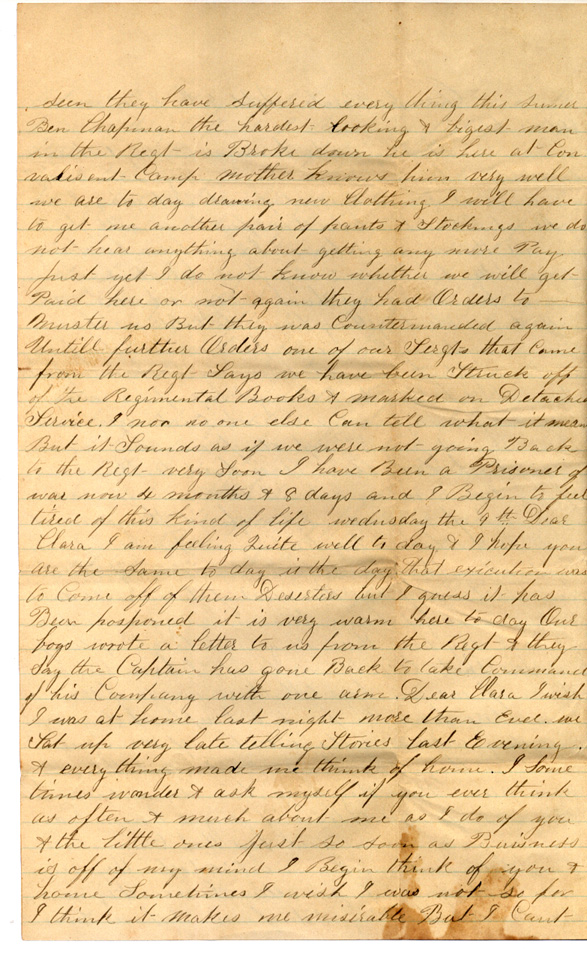 seen they have suffered every thing this sumer
Ben Chapman the hardest looking & bigest man
in the Regt is Broke down he is here at Con
valisent Camp mother knows him very well
we are to day drawing new Clothing I will have
to get me another pair of pants & Stockings we do
not hear anything about getting any more Pay
just yet I do not know whether we will get
Paid here or not again they had Orders to
Muster us But they was Countermanded again
Untill further Orders one of our Sergts that Came
from the Regt Says we have been Struck off
of the Regimental Books & marked on Detache
Service. I nor no one else Can tell what it mean
But it Sounds as if we were not going Back
to the Regt very Soon I have Been a Prisoner of
war now 4 months & 8 days and I Begin to feel
tired of this kind of life wednesday the 9th Dear
Clara I am feeling Quite well to day & I hope you
are the same to day it the day that exicution was
to Come off of them Deserters but I guess it has
Been posponed it is very warm here to day Our
boys wrote a letter to us from the Regt & they
Say the Captain has gone Back to take Command
of his Company with one arm. Dear Clara I wish
I was at home last night more than Ever. we
Sat up very late telling Stories last Evening.
& everything made me think of home. I Some
times wonder & ask myself if you ever think
as often & much about me as I do of you
& the little ones just so soon as Buisness
is off of my mind I Begin think of you &
home Sometimes I wish I was not so far
I think it makes me misirable But I Cant